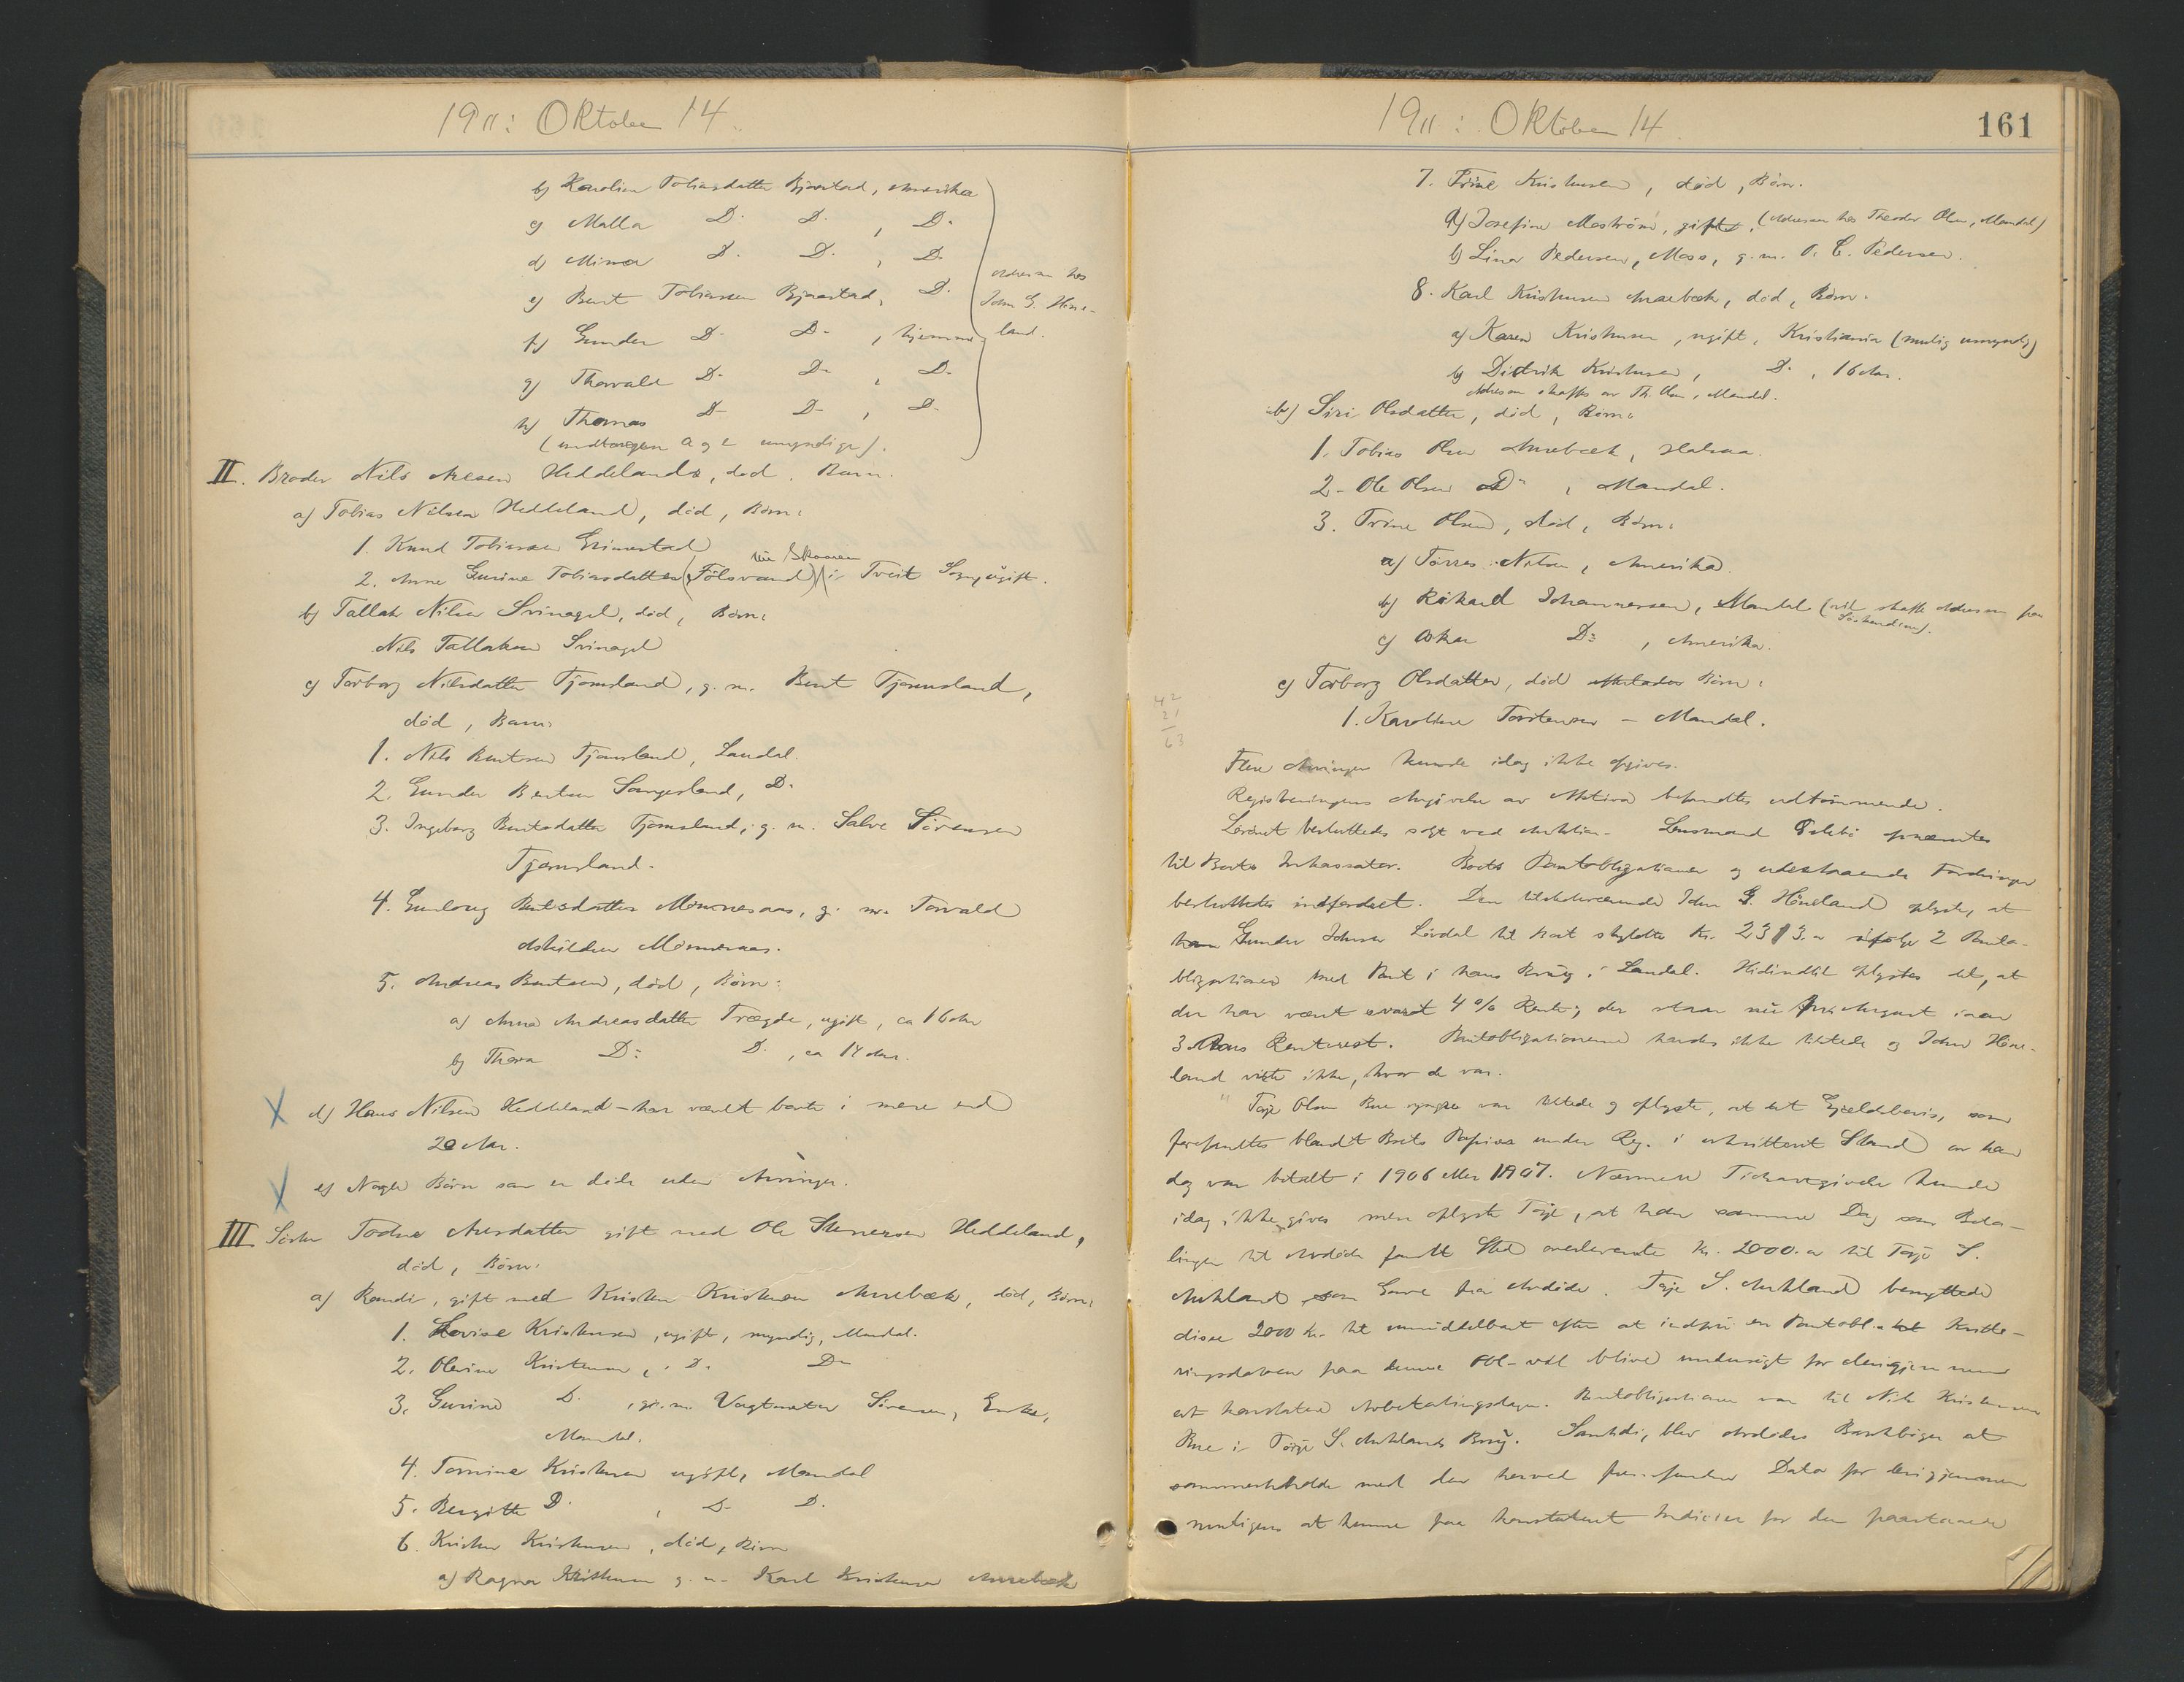 1911: Oktober 14.
b) Karoline Tobiasdatter Bjørstad, Amerika
c) Malla D. D. , D.
d) Mina D. D. , D.
e) Bent Tobiassen Bjørstad, D.
Adressen hos
John G. Høne-
land.
f) Gunder D. D. , hjemme
g) Thorvald D. D. , D.
h) Thomas D. D. , D.
(undtagen a og e umyndige).
II. Broder Nils Aresen Heddeland, død. Barn.
a) Tobias Nilsen Heddeland, død, Børn:
1. Knud Tobiassen Grimestad
nu Skaaren
2. Anne Gurine Tobiasdatter (Følsvand) i Tveit Sogn, ugift.
b) Tallak Nilsen Svinagel, død, Børn:
Nils Tallaksen Svinagel
c) Torborg Nilsdatter Tjomsland, g. m. Bent Tjomsland,
død, Barn:
1. Nils Bentsen Tjomsland, Laudal.
2. Gunder Bentsen Sangesland, D.
3. Ingeborg Bentsdatter Tjomsland, g. m. Salve Sørensen
Tjomsland.
4. Gunlaug Bentsdatter Monnesaas, g. m. Torvald
Monnesaas.
5. Andreas Bentsen, død, Børn:
a) Anna Andreasdatter Trægde, ugift, ca 16 Aar
b) Thora D: D. , ca 14 Aar.
X d) Hans Nilsen Heddeland – har været borte i mere end
20 Aar.
X e) Nogle Børn som er døde uden Arvinger.
III Søster Todne Aresdatter gift med Ole Stenersen Heddeland,
død, Børn:
a) Randi, gift med Kristen Kristensen Aurebæk, død, Børn:
1. Lovise Kristensen, ugift, myndig, Mandal.
2. Olevine Kristensen, D. D.
3. Gurine D. , g. m. Vagtmester Sørensen, Enke,
Mandal.
4. Tomine Kristensen ugift, Mandal
5. Bergitte D. , D. D.
6. Kristen Kristensen, død, Børn
a) Ragna Kristensen g. m. Karl Kristensen Aurebæk
1911: Oktober 14.
161
7. Trine Kristensen, død, Børn.
a) Josefine Moström, gift, (Adressen hos Theodor Olsen, Mandal)
b) Lina Pedersen, Moss, g. m. P. C. Pedersen.
8. Karl Kristensen Aurebæk, død, Børn.
a) Karen Kristensen, ugift, Kristiania (mulig umyndig)
b) Didrik Kristensen, D. , 16 Aar.
Adressen skaffes av Th. Olsen, Mandal.
b) Siri Olsdatter, død, Børn:
1. Tobias Olsen Aurebæk, Halsaa.
2. Ole Olsen D: , Mandal.
3. Trine Olsen, død, Børn:
a) Tørres Nilsen, Amerika.
b) Rikard Johannessen, Mandal (vil skaffe Adressen paa
Søskendene).
c) Oskar D: , Amerika.
c) Torborg Olsdatter, død Børn:
1. Karoline Torstensen – Mandal.
42
21
63
Flere Arvinger kunde idag ikke opgives.
Registreringens Angivelse av Aktiva befandtes udtømmende.
Løsøret besluttedes solgt ved Auktion. Lensmand opnævntes
til Boets Inkassator. Boets Pantobligationer og udestaaende Fordringer
besluttedes indfordret. Den tilstedeværende John G. Høneland oplyste, at
Gunder Johnsen Løvdal til Boet skyldte Kr. 2313. ifølge 2 Panto-
bligationer med Pant i hans Brug i Laudal. Hidindtil oplystes det, at
der har været svaret 4 % Rente; der staar nu fra August iaar
3 Aars Renterest. Pantobligationerne havdes ikke tilstede og John Høne-
land viste ikke, hvor de var.
Terje Olsen Bue var tilstede og oplyste, at det Gjældsbevis, som
forefandtes blandt Boets Papirer under Reg. i Stand av ham
dog var betalt i 1906 eller 1907. Nærmere Tidsangivelse kunde
idag ikke gives men oplyste Terje, at han samme Dag som Beta-
lingen til Avdøde fandt Sted overleverte Kr. 2000. til Terje S.
Aukland som Gave fra Avdøde. Terje S. Aukland benyttede
disse 2000 Kr. til umiddelbart efter at indfri en Pantobl. Kvitte-
ringsdatoen paa denne Obl. vil blive undersøgt for derigjennem
at konstatere Avbetalingsdagen. Pantobligationen var til Nils Kristensen
Bue i Terje S. Auklands Brug. Samtidig blev Avdødes Bankbøger at
sammenholde med den herved fundne Dato for derigjennem
muligens at kunne faa konstateret Indicier for den paastaaede